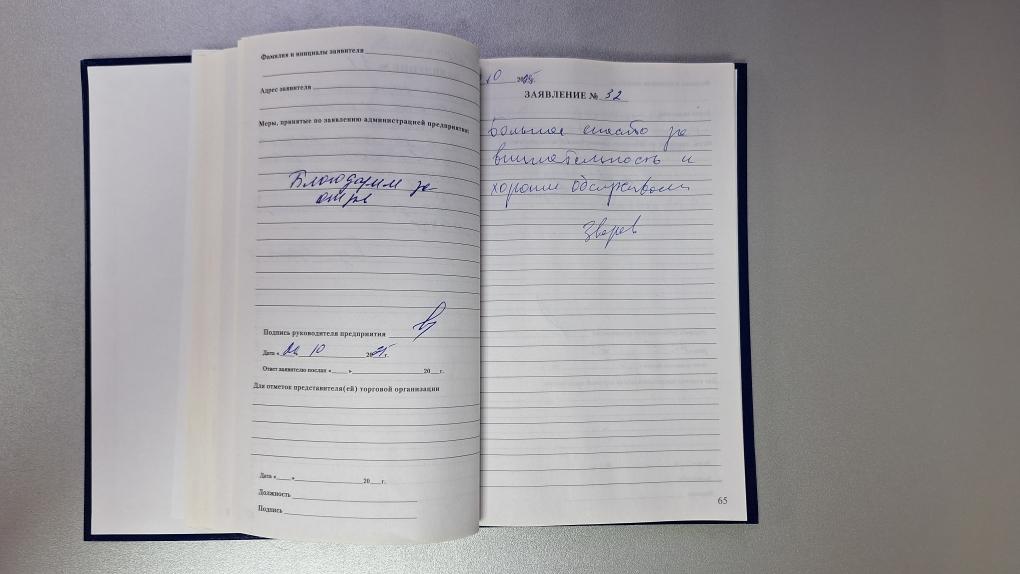 Фамилия и инициалы заявителя
Адрес заявителя
Меры, принятые по заявлению администрацией предприятия:
Благодарим за
отзыв
Подпись руководителя предприятия
Дата « 10 2025г.
Ответ заявителю послан « » 20 г.
Для отметок представителя(ей) торговой организации
Дата « » 20 г.
Должность
Подпись
10 2025г.
ЗАЯВЛЕНИЕ № 32
Большое спасибо за
внимательность и
хорошее обслуживание
Зверев
65